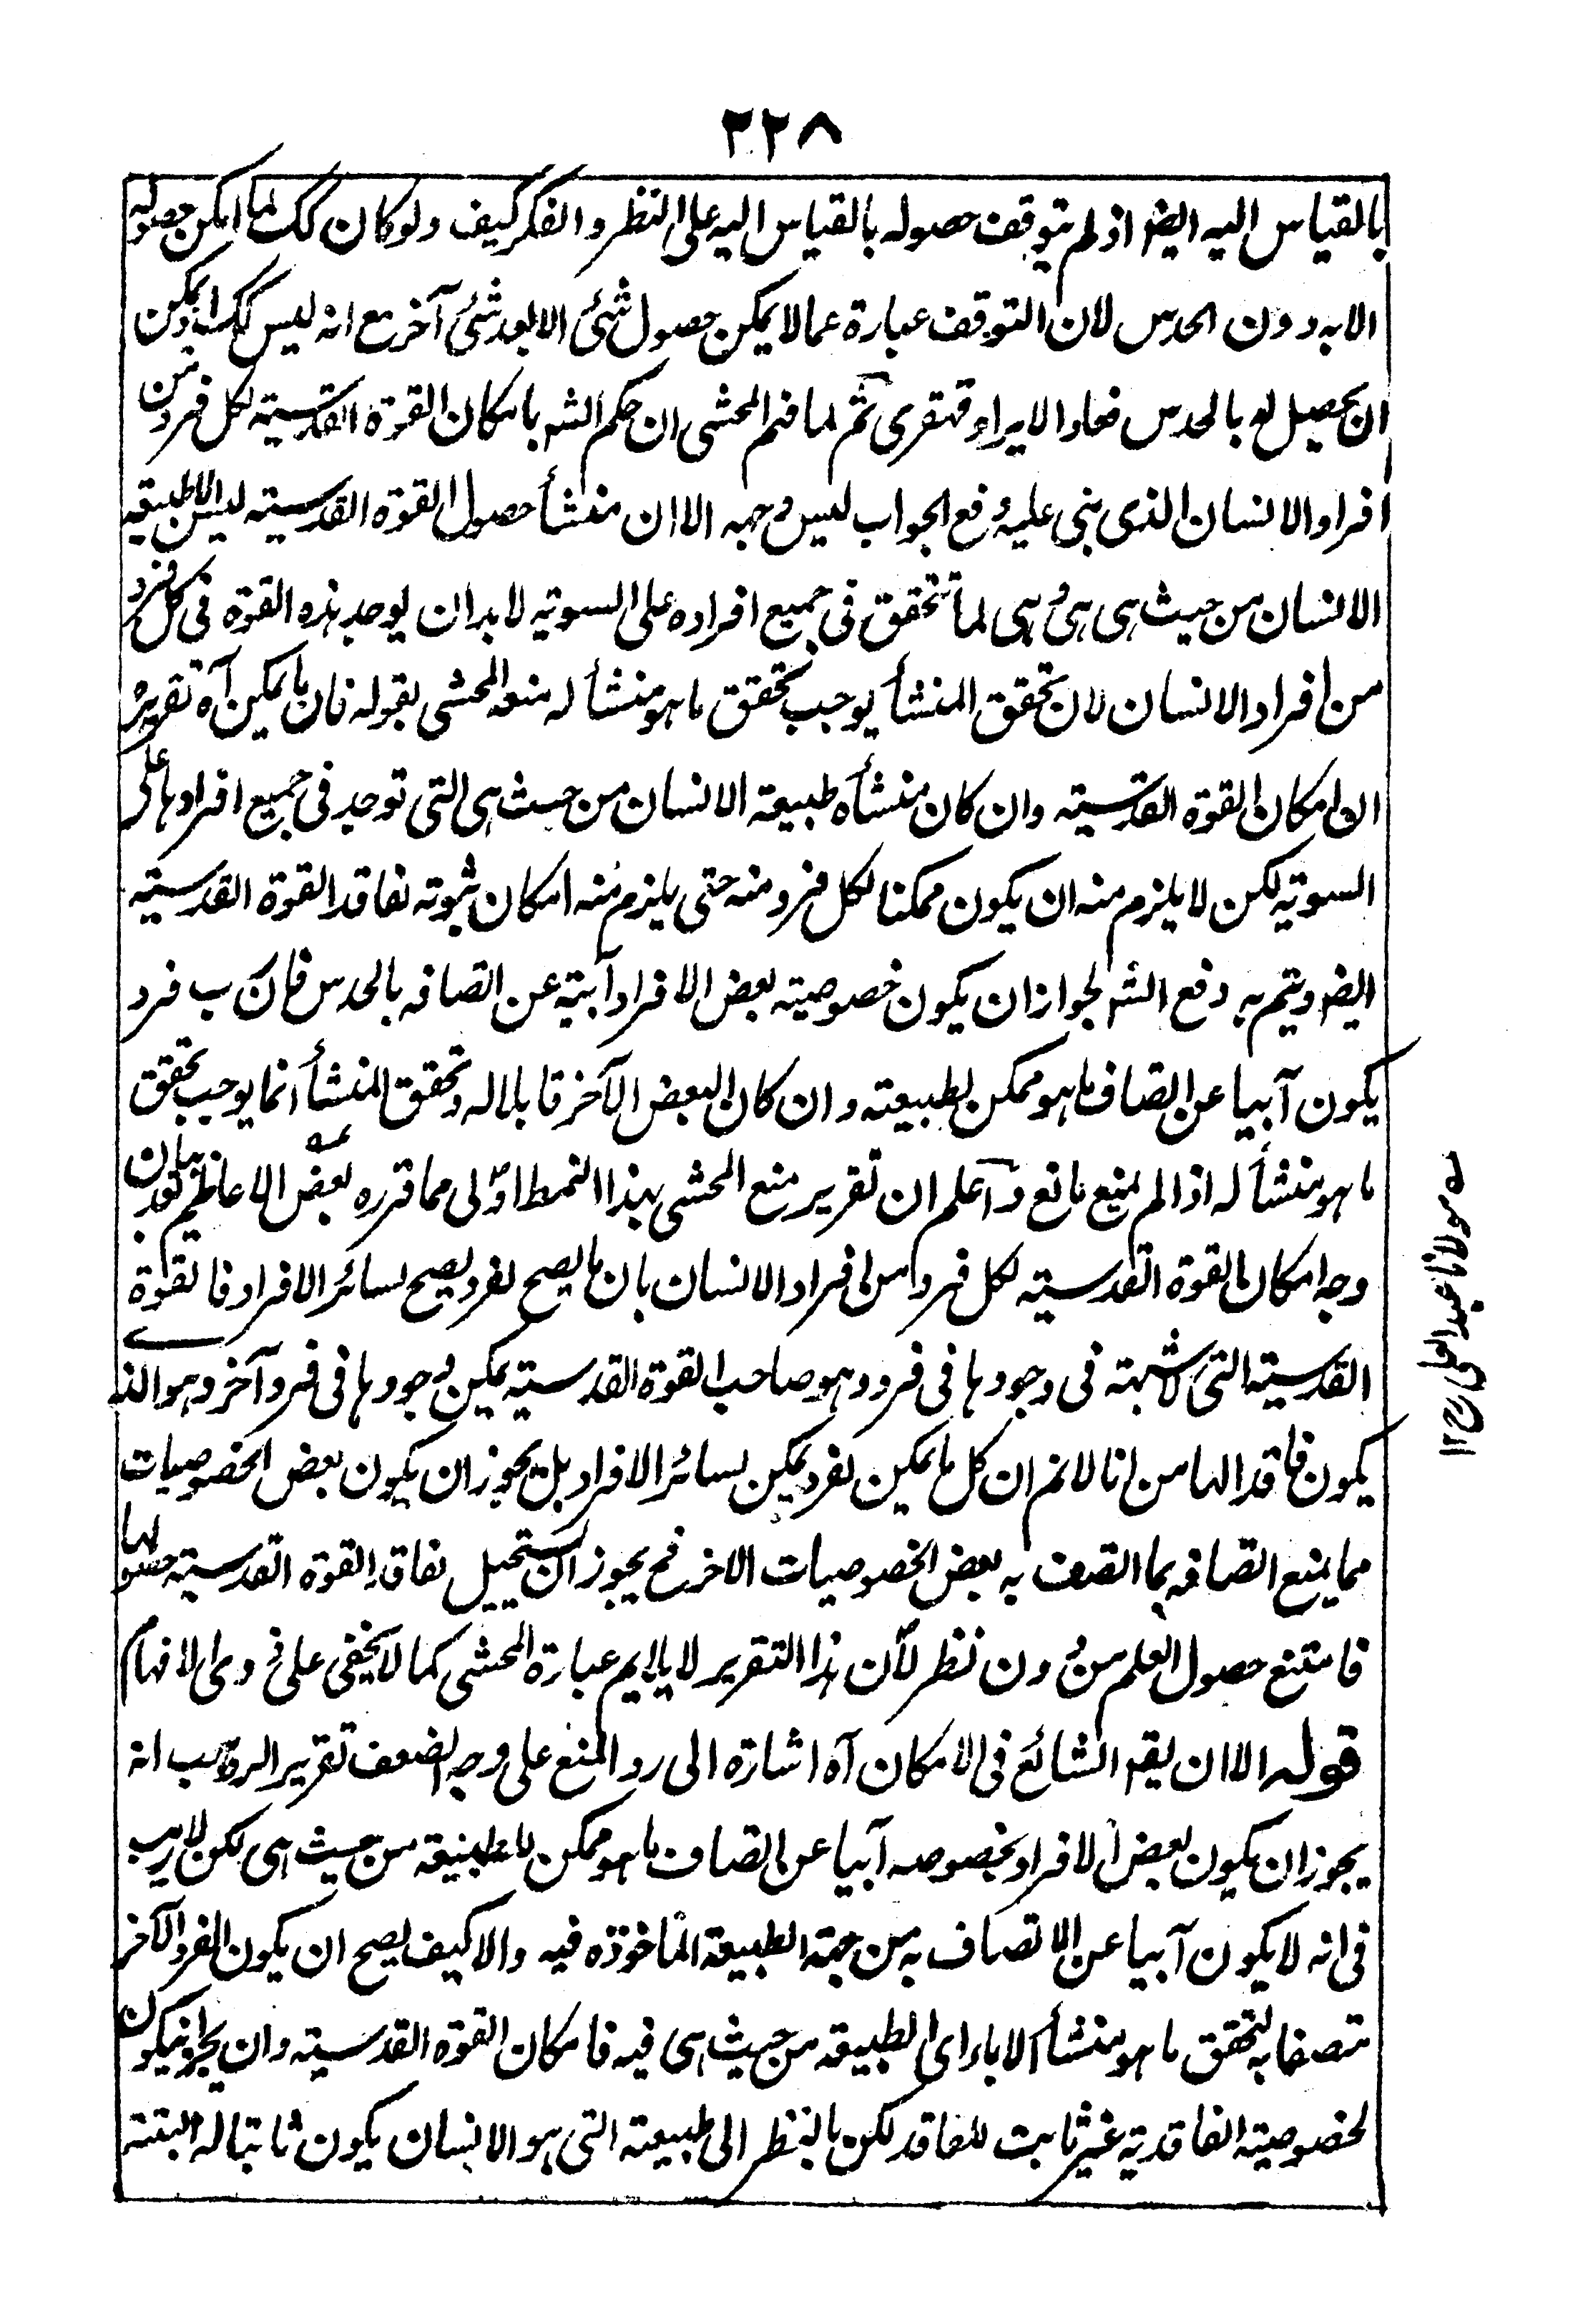 ٢٢٨
بالقياس اليه ايضا اذ لم يتوقف حصوله بالقياس اليه على النظر والفكر كيف ولو كان كك لما امكن حصوله
الا به دون الحدس لان التوقف عبارة عما لا يمكن حصول شئ الا بعد شئ آخر مع انه ليس كك اذ يمكن
ان يحصيل له بالحدس فعاد الايراد قهقرى ثم لما فهم المحشى ان حكم الشه بامكان القوة القدسية لكل فرد من
افراد الانسان الذى بنى عليه دفع الجواب ليس وجهه الا ان منشأ حصول القوة القدسية ليس الا طبيعة
الانسان من حيث هى هى وهى لما تتحقق فى جميع افراده على السوية لا بد ان يوجد هذه القوة فى كل فرد
من افراد الانسان لان تحقق المنشأ يوجب تحقق ما هو منشأ له منعه المحشى بقوله فان ما يمكن آه تقريره
ان امكان القوة القدسية وان كان منشأه طبيعة الانسان من حيث هى التى توجد فى جميع افرادها على
السوية لكن لا يلزم منه ان يكون ممكنا لكل فرد منه حتى يلزم منه امكان ثبوته لفاقد القوة القدسية
ايضا ويتم به دفع الشه لجواز ان يكون خصوصية بعض الافراد آبية عن اتصافه بالحدس فان رب فرد
يكون آبيا عن اتصاف ما هو ممكن لطبيعته وان كان البعض الآخر قابلا له وتحقق المنشأ انما يوجب تحقق
ما هو منشأ له اذا لم يمنع مانع واعلم ان تقرير منع المحشى بهذا النمط اولى مما قرره بعض الاعاظم بعد بيان
وجه امكان القوة القدسية لكل فرد من افراد الانسان بان ما يصح لفرد يصح لسائر الافراد فالقوة
القدسية التى لا شبهة فى وجودها فى فرد وهو صاحب القوة القدسية يمكن وجودها فى فرد آخر وهو الذى
يكون فاقدا لها من انا لا نم ان كل ما يمكن لفرد يمكن لسائر الافراد بل يجوز ان يكون بعض الخصوصيات
مما يمنع اتصافه بما اتصف به بعض الخصوصيات الاخر فح يجوز ان يستحيل لفاقد القوة القدسية حصولها
فامتنع حصول العلم من دون نظر لأن هذا التقرير لا يلايم عبارة المحشى كما لا يخفى على ذوى الافهام
قوله الا ان يقه الشائع فى الامكان آه اشارة الى رد المنع على وجه الضعف تقرير الرد هب انه
يجوز ان يكون بعض الافراد بخصوصه آبيا عن اتصاف ما هو ممكن للطبيعة من حيث هى لكن لا ريب
فى انه لا يكون آبيا عن الاتصاف به من جهة الطبيعة المأخوذة فيه والا كيف يصح ان يكون الفرد الآخر
متصفا به لتحقق ما هو منشأ الاباء اى الطبيعة من حيث هى فيه فامكان القوة القدسية وان يجوز ان يكون
لخصوصية الفاقدية غير ثابت للفاقد لكن بالنظر الى طبيعته التى هو الانسان يكون ثابتا له البتة
مولانا عبد العلى رح ١٢